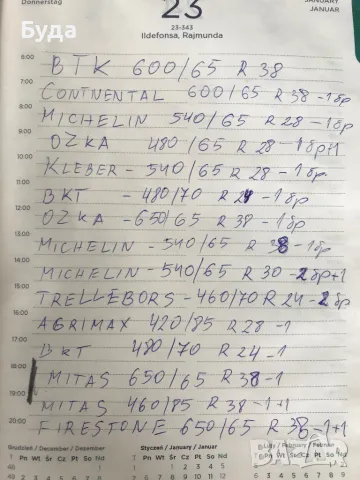 Donnerstag
23
JANUARY
JANUAR
Буда
23-343
Ildefonsa, Rajmunda
6:00
BTK 600/65 R 38
7:00
CONTNENTAL 600/65 R 38 - 1бр
8:00
MICHELIN 540/65 R 28 - 1бр
9:00
OZKA 480/65 R 28 - 1бр+1
10:00
KLEBER - 540/65 R 28 - 1бр.
11:00
BKT - 480/70 R 24 - 1бр
12:00
OZKA - 650/65 R 38 - 1бр
13:00
MICHELIN - 540/65 R 38 - 1бр
14:00
MICHELIN - 540/65 R 30 - 2бр+1
15:00
TRELLEBORS - 460/70 R 24 - 2бр
16:00
AGRIMAX 420/85 R 28 - 1
17:00
BKT 480/70 R 24 - 1
18:00
MITAS 650/65 R 38 - 1
19:00
MITAS 460/85 R 38 - 1+1
20:00
FIRESTONE 650/65 R 38 - 1+1
Grudzień / December / Dezember
Styczeń / January / Januar
Luty / February / Februar
T Pn Wt Śr Cz Pt So Nd
T Pn Wt Śr Cz Pt So Nd
1 2 3 4 5